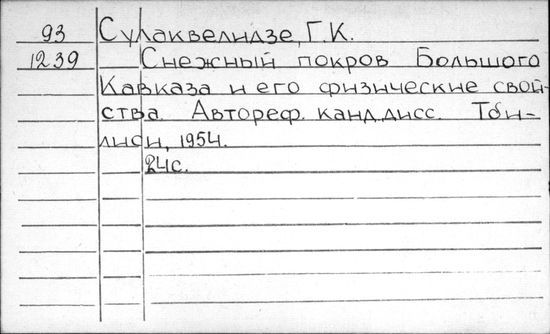 93 Сулаквелидзе, Г.К.
1239 Снежный покров Большого
Кавказа и его физические свой-
ства. Автореф. канд. дисс. Тби-
лиси, 1954.
24с.